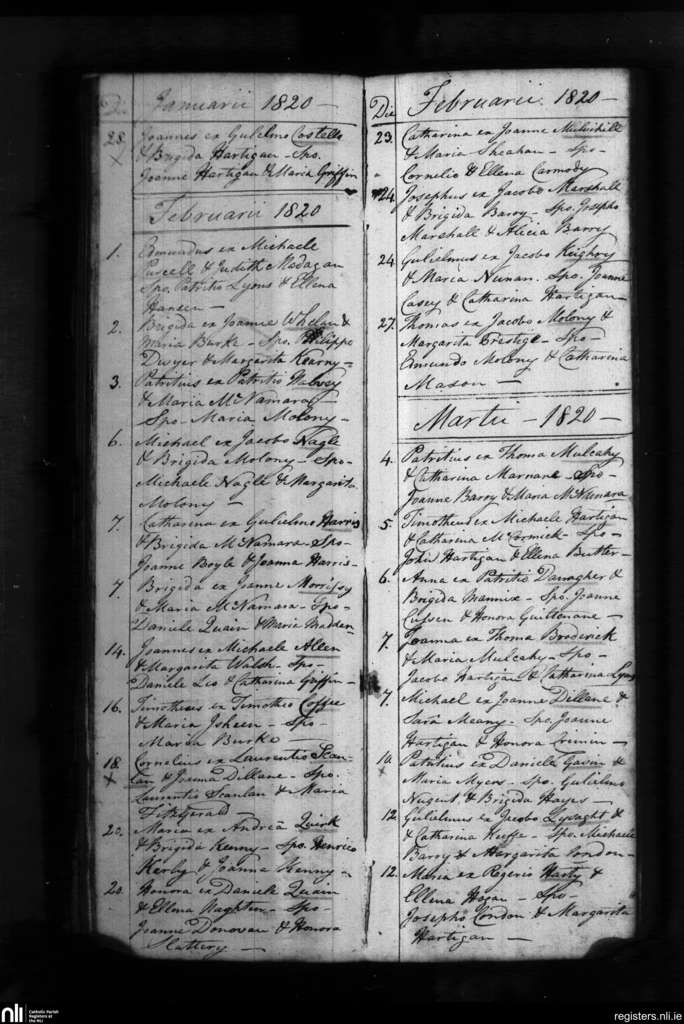 Di. Januarii 1820 —
28. Joannes ex Gulelmo Costello
X & Brigida Hartigan - Spo.
Joanne Hartigan & Maria Griffin
Februarii 1820
1. Edmundus ex Michaele
Purcell & Judith Madagan
Spo. Patritio Lyons & Ellena
Hansen —
2. Brigida ex Joanne Whelan &
Maria Burke - Spo. Philippo
Dwyer & Margarita Kearny -
3. Patritius ex Patritio Halvey
& Maria McNamara
Spo. Maria Molony -
6. Michael ex Jacobo Nagle
& Brigida Molony - Spo -
Michaele Nagle & Margarita
Molony —
7. Catharina ex Gulielmo Harris
& Brigida McNamara - Spo -
Joanne Boyle & Joanna Harris -
7. Brigida ex Joanne Morrissy
& Maria McNamara - Spo -
Daniele Quain & Maria Madden -
14. Joannes ex Michaele Allen
& Margarita Walsh - Spo -
Daniele Leo & Catharina Griffin -
16. Timotheus ex Timotheo Coffee
& Maria Joheen - Spo -
Maria Burke —
18. Cornelius ex Laurentio Scan-
X lan & Joanna Dillane - Spo.
Laurentio Scanlan & Maria
Fitzgerald —
20. Maria ex Andreâ Quirk
& Brigida Kenny - Spo. Henrico
Kerby & Joanna Kenny -
20. Honora ex Daniele Quain
& Ellena Naghten - Spo -
Joanne Donovan & Honora
Slattery —
Die Februarii. 1820 —
23. Catharina ex Joanne Mulvihill
& Maria Sheahan - Spo -
Cornelio & Ellena Carmody
24. Josephus ex Jacobo Marshall
& Brigida Barry - Spo. Josepho
Marshall & Alicia Barry
24. Gulielmus ex Jacobo Keighory
& Maria Nunan. Spo. Joanne
Casey & Catharina Hartigan -
27. Thomas ex Jacobo Molony &
Margarita Prestige - Spo -
Edmundo Molony & Catharina
Mason —
Martii — 1820 —
4. Patritius ex Thoma Mulcahy
& Catharina Marnane - Spo -
Joanne Barry & Maria McNamara
5. Timotheus ex Michaele Hartigan
& Catharina McCormick - Spo -
John Hartigan & Ellena Butler -
6. Anna ex Patritio Danagher &
Brigida Mannix - Spo. Joanne
Cussen & Honora Guiltenane -
7. Joanna ex Thoma Broderick
& Maria Mulcahy - Spo -
Jacobo Hartigan & Catharina Lyons
7. Michael ex Joanne Dillane &
Sara Meany - Spo. Joanne
Hartigan & Honora Crimin —
10. Patritius ex Daniele Gavin &
X Maria Myers - Spo. Gulielmo
Nugent & Brigida Hayes —
12. Gulielmus ex Jacobo Lysaght &
Catharina Keeffe - Spo. Michaele
Barry & Margarita Condon —
12. Maria ex Rogerio Harty &
Ellena Hogan - Spo -
Josepho Condon & Margarita
Hartigan —
nli Catholic Parish
Registers at
the NLI
registers.nli.ie